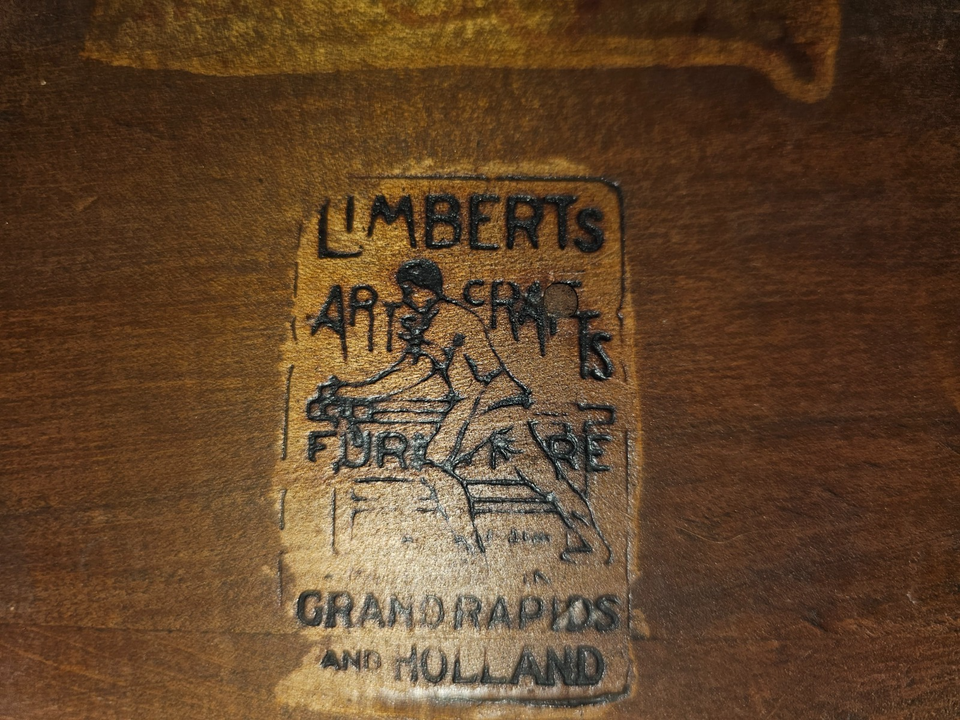 LIMBERTS
ARTS CRAFTS
FURNITURE
GRAND RAPIDS
AND HOLLAND